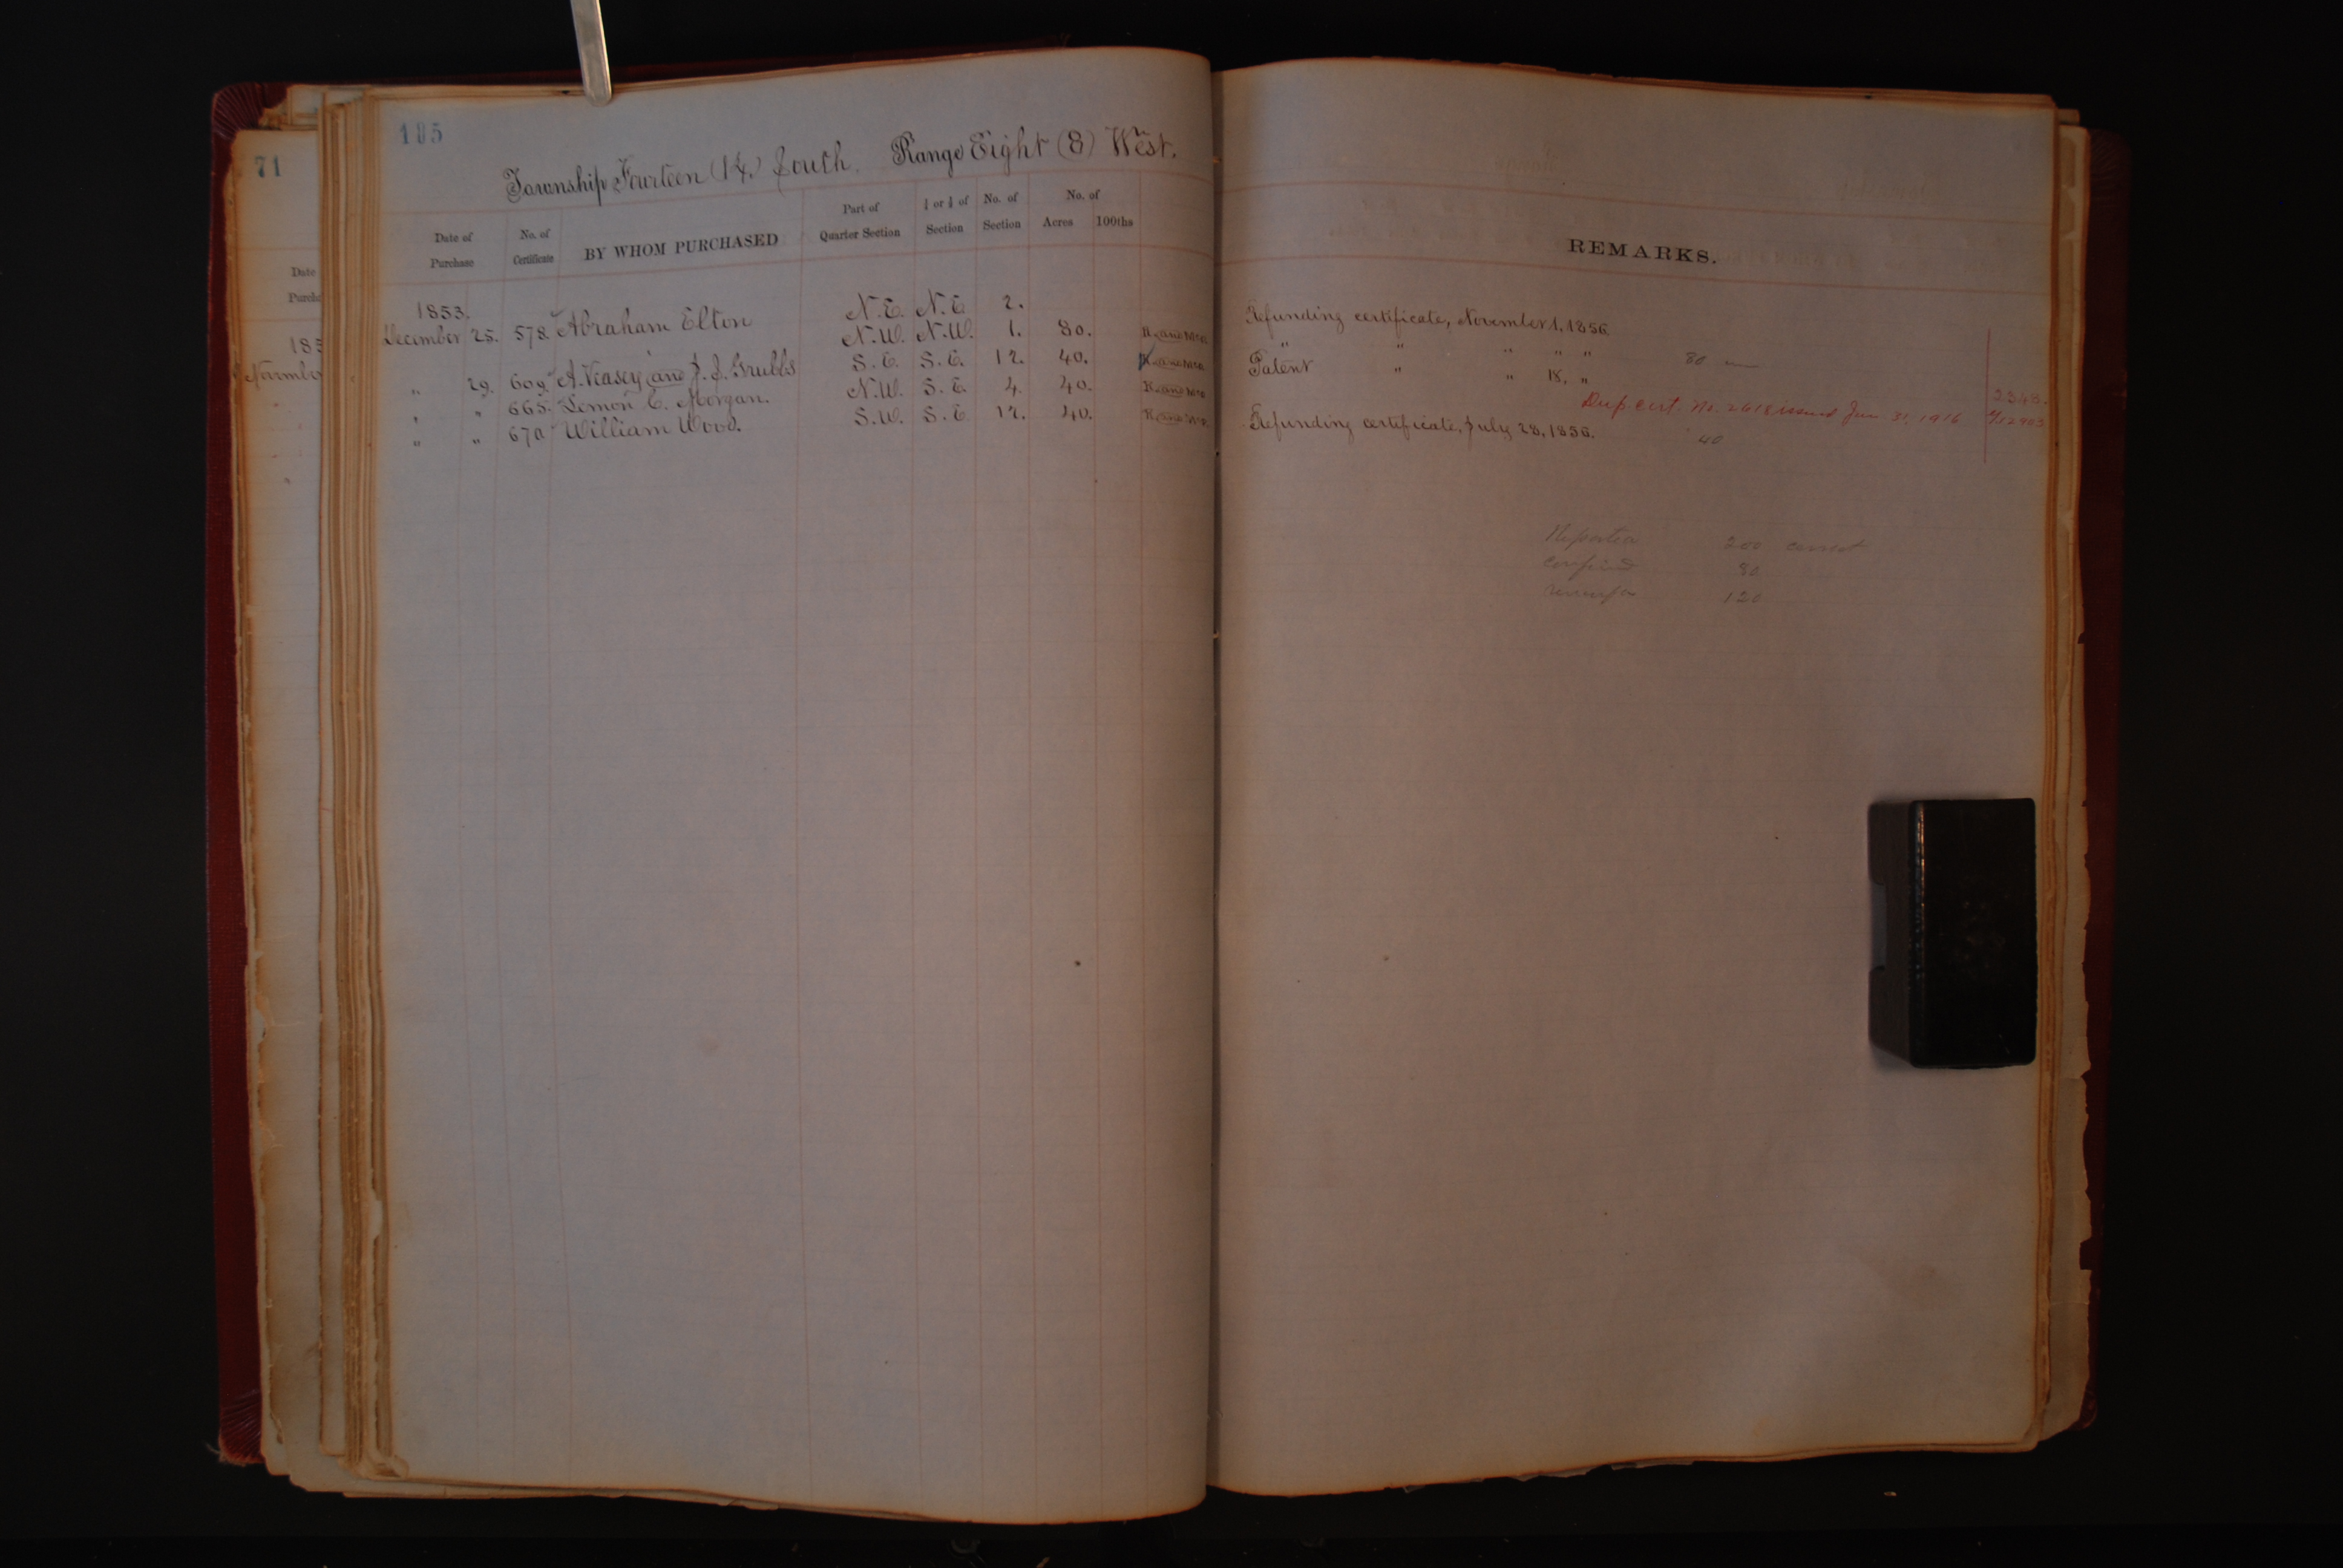 71
Date
Purch
185
105
Township Fourteen (14) South. Range Eight (8) West.
Date of Purchase No. of Certificate BY WHOM PURCHASED Part of Quarter Section ½ or ¼ of Section No. of Section No. of Acres 100ths
1853. N.E. N.E. 2.
December 25. 578. Abraham Elton N.W. N.W. 1. 80.
" 29. 609. A. Veasey and J. J. Grubbs S.E. S.E. 12. 40.
" " 665. Lemon C. Morgan. N.W. S.E. 4. 40.
" " 670 William Wood. S.W. S.E. 12. 40.
REMARKS.
Refunding certificate, November 1, 1856.
" " " " " 80
Patent " " 18, "
2348.
Dup. cert. No. 2618 issued Jan 31, 1916
Refunding certificate, July 28, 1856. 40
Reported 200 correct
confirmed 80
120